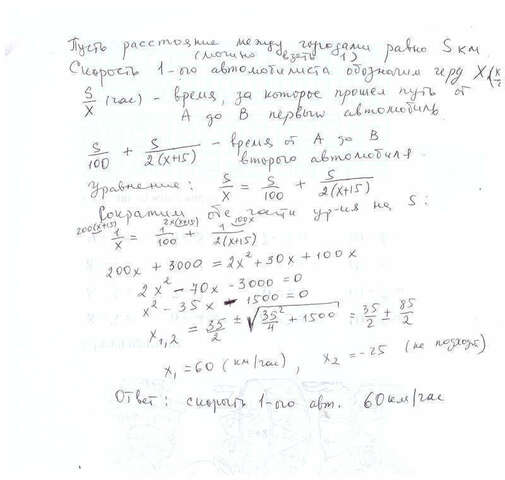 Пусть расстояние между городами равно S км
(можно взять 1)
Скорость 1-ого автомобилиста обозначим через X (к/
S/X (час) - время, за которое прошел путь от
A до B первый автомобиль
S/100 + S/2(x+15) - время от A до B
второго автомобиля.
Уравнение: S/X = S/100 + S/2(x+15)
Сократим обе части ур-ия на S:
200(x+15) 2x(x+15) 100x
1/X = 1/100 + 1/2(x+15)
200x + 3000 = 2x² + 30x + 100x
2x² - 70x - 3000 = 0
x² - 35x - 1500 = 0
x₁,₂ = 35/2 ± √(35²/4 + 1500) = 35/2 ± 85/2
x₁ = 60 (км/час), x₂ = -25 (не подходит)
Ответ: скорость 1-ого авт. 60 км/час